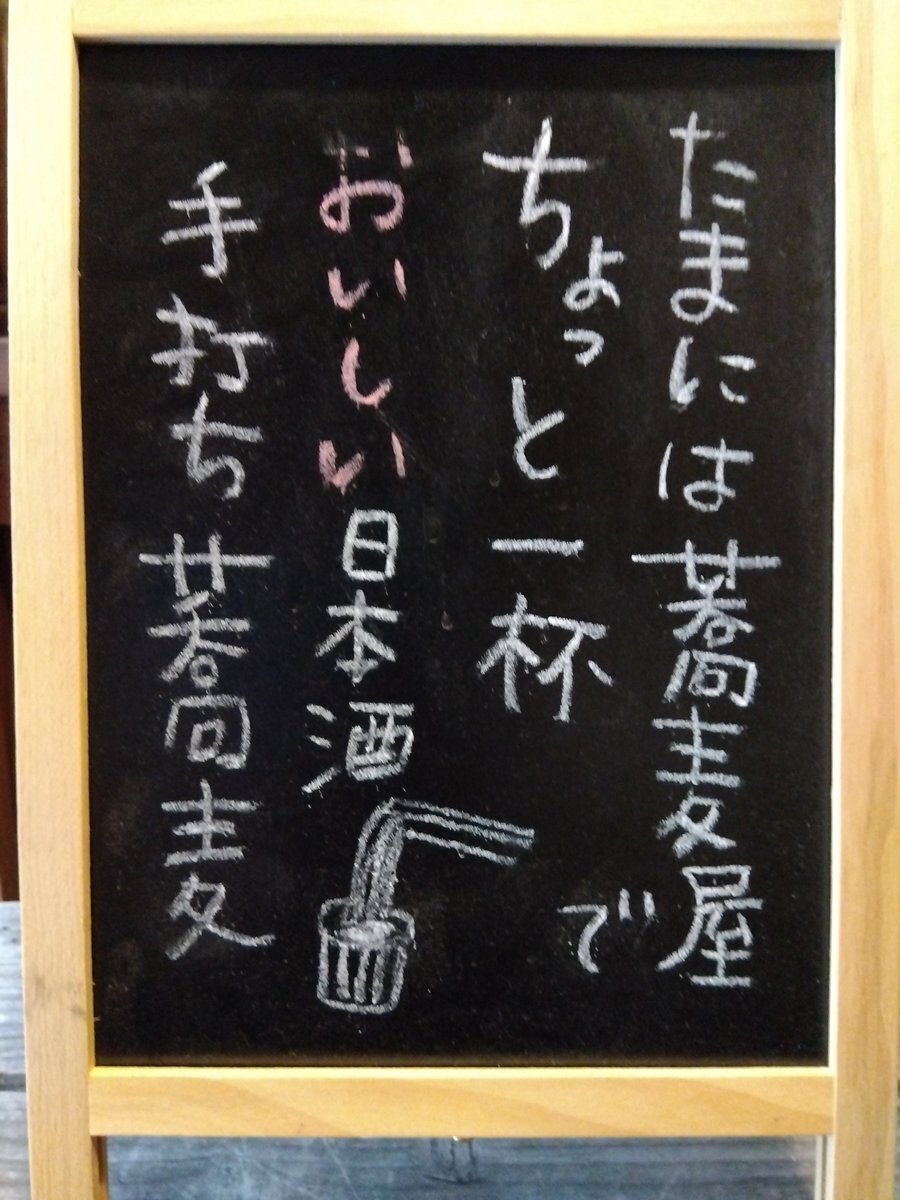 たまには蕎麦屋で
ちょっと一杯
おいしい日本酒
手打ち蕎麦